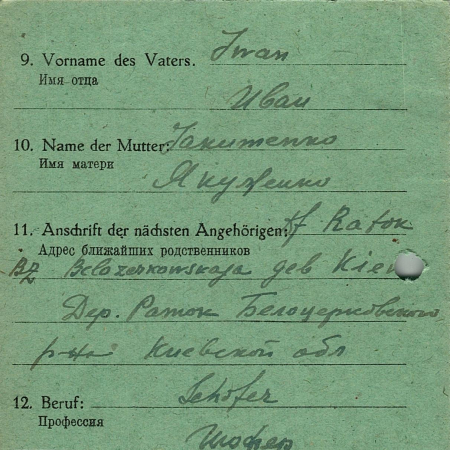 9. Vorname des Vaters. Iwan
Имя отца
Иван
10. Name der Mutter: Jakimenko
Имя матери
Якименко
11. Anschrift der nächsten Angehörigen: Df Ratok
Адрес ближайших родственников
Bz Belozerkowskaja geb Kiew
Дер. Раток Белоцерковского
р-на Киевской обл
12. Beruf: Schöfer
Профессия
Шофер